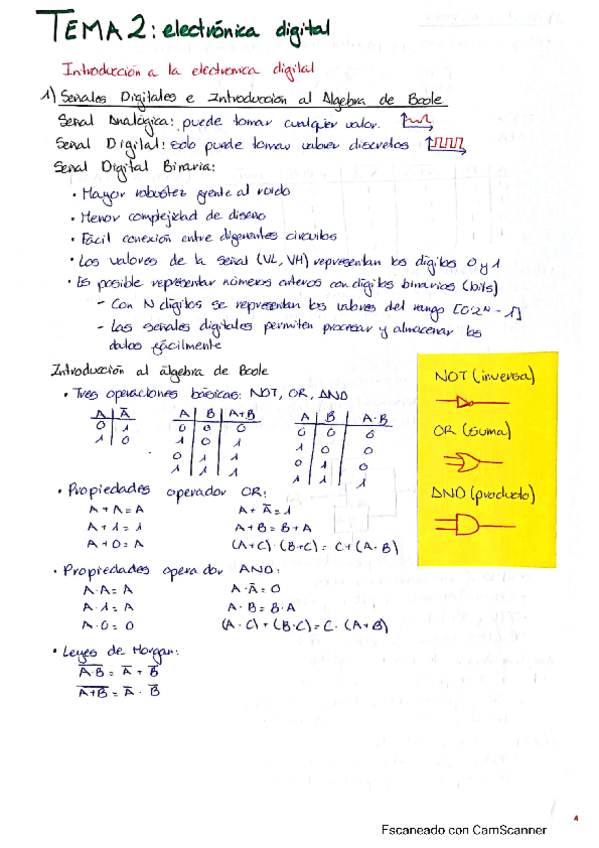 TEMA 2: electrónica digital
Introducción a la electronica digital
1) Señales Digitales e Introducción al Algebra de Boole
Señal Analógica: puede tomar cualquier valor.
Señal Digital: solo puede tomar valores discretos
Señal Digital Binaria:
• Mayor robustez frente al ruido
• Menor complejidad de diseño
• Fácil conexión entre diferentes circuitos
• Los valores de la señal (VL, VH) representan los dígitos 0 y 1
• Es posible representar números enteros con dígitos binarios (bits)
- Con N dígitos se representan los valores del rango [0:2ᴺ - 1]
- Las señales digitales permiten procesar y almacenar los
datos fácilmente
Introducción al álgebra de Boole
• Tres operaciones básicas: NOT, OR, AND
A Ā A B A+B A B A·B
0 1 0 0 0 0 0 0
1 0 1 0 1 1 0 0
0 1 1 0 1 0
1 1 1 1 1 1
NOT (inversa)
OR (suma)
AND (producto)
• Propiedades operador OR:
A + A = A A + Ā = 1
A + 1 = 1 A + B = B + A
A + 0 = A (A+C) · (B+C) = C + (A · B)
• Propiedades operador AND:
A · A = A A · Ā = 0
A · 1 = A A · B = B · A
A · 0 = 0 (A · C) + (B · C) = C · (A + B)
• Leyes de Morgan:
A̅·̅B̅ = A̅ + B̅
A̅+̅B̅ = A̅ · B̅
Escaneado con CamScanner